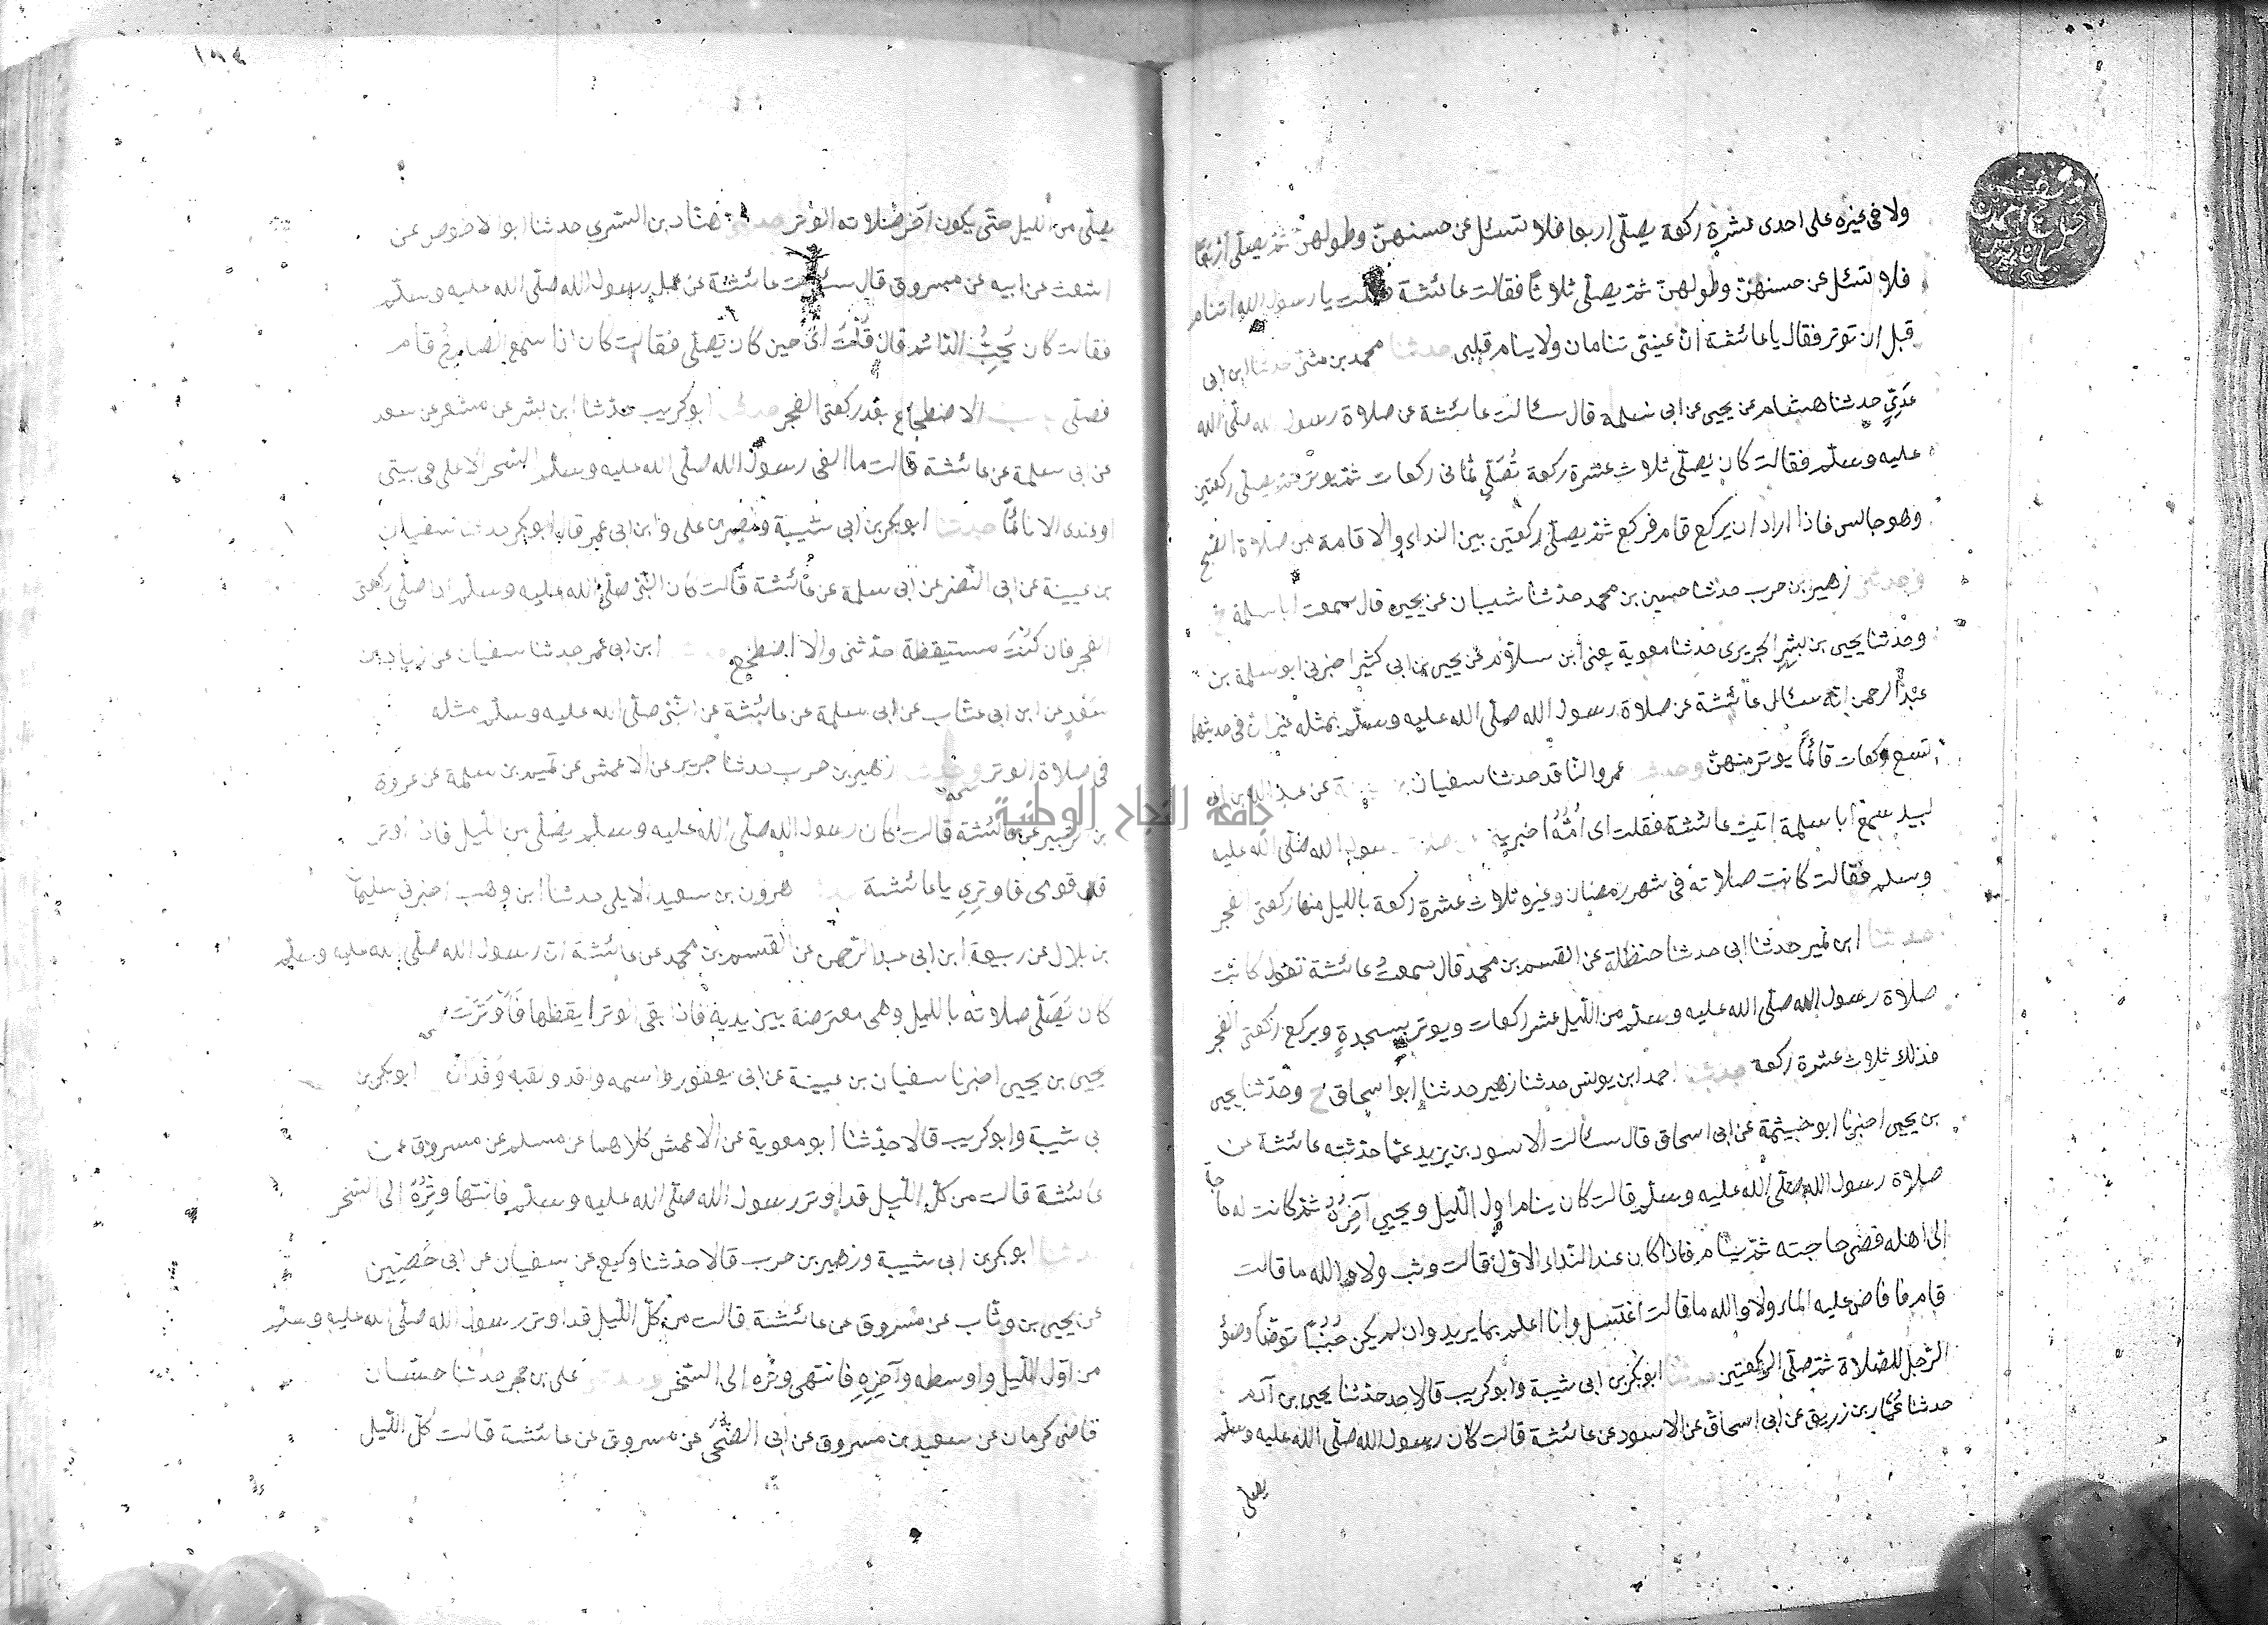 ولا في غيره على احدى عشرة ركعة يصلّى اربعا فلا تسئل عن حسنهنّ وطولهنّ ثمّ يصلّى اربعًا
فلا تسئل عن حسنهنّ وطولهنّ ثمّ يصلّى ثلاثًا فقالت عائشة فقلت يا رسول الله اتنام
قبل ان توتر فقال يا عائشة انّ عينيّ تنامان ولا ينام قلبى حدثنا محمد بن مثنى حدثنا ابن ابى
عَدِيّ حدثنا هشام عن يحيى عن ابى سلمة قال سئالت عائشة عن صلاة رسول الله صلّى الله
عليه وسلّم فقالت كان يُصلّى ثلاث عشرة ركعة يُصَلّى ثمانى ركعات ثمّ يوتر ثمّ يصلّى ركعتين
وهو جالس فاذا اراد ان يركع قام فركع ثمّ يصلّى ركعتين بين النداء والاقامة من صلاة الصّبح
وحدثنى زهير بن حرب حدثنا حسين بن محمد حدّثنا شيبان عن يحيى قال سمعت ابا سلمة ح
وحدّثنا يحيى بن بشر الجريرى حدثنا معوية يعنى ابن سلاّم عن يحيى بن ابى كثير اخبرنى ابو سلمة بن
عبد الرحمن انّه سئال عائشة عن صلاة رسول الله صلّى الله عليه وسلّم بمثله غير انّ فى حديثهما
تسع ركعات قائمًا يوتر منهنّ وحدثنا عمرو النّاقد حدثنا سفيان بن عيينة عن عبد الله بن ابى
لبيد سمع ابا سلمة اتيت عائشة فقلت اى امّهْ اخبرينى عن صلاة رسول الله صلّى الله عليه
وسلم فقالت كانت صلاته فى شهر رمضان وغيره ثلاث عشرة ركعة بالليل منها ركعتى الفجر
حدثنا ابن نمير حدّثنا ابى حدثنا حنظلة عن القسم بن محمد قال سمعت عائشة تقول كانت
صلاة رسول الله صلّى الله عليه وسلم من الليل عشر ركعات ويوتر بسجدةٍ ويركع ركعتى الفجر
فذلك ثلاث عشرة ركعة حدثنا احمد ابن يونس حدثنا زهير حدثنا ابو اسحاق ح وحدّثنا يحيى
بن يحيى اخبرنا ابو خيثمة عن ابى اسحاق قال سئالت الاسود بن يزيد عمّا حدّثته عائشة عن
صلاة رسول الله صلّى الله عليه وسلّم قالت كان ينام اول اللّيل ويحيى آخِرُهُ ثمّ كانت له حاجة
الى اهله قضى حاجته ثمّ ينام فاذا كان عند النّداء الاوّل قالت وثب ولا والله ما قالت
قام فافاض عليه الماء ولا والله ما قالت اغتسل وانا اعلم بما يريد وان لم يكن جُنُبًا توضّأ وضؤ
الرّجل للصّلاة ثمّ صلّى الركعتين حدثنا ابو بكر بن ابى شيبة وابو كريب قالا حدثنا يحيى بن آدم
حدثنا عمّار بن زريق عن ابى اسحاق عن الاسود عن عائشة قالت كان رسول الله صلّى الله عليه وسلّم
يصلى
١٩٤
يصلّى من اللّيل حتّى يكون آخر صلاته الوتر حدثنى هنّاد بن السّرى حدثنا ابو الاحوص عن
اشعث عن ابيه عن مسروق قال سئالت عائشة عن عمل رسول الله صلّى الله عليه وسلّم
فقالت كان يُحِبُّ الدّائم قال قُلْتُ اىّ حين كان يصلّى فقالت كان اذا سمع الصارخ قام
فصلّى باب الاضطجاع بعد ركعتى الفجر حدثنا ابو كريب حدّثنا ابن بشر عن مسعر عن سعد
عن ابى سلمة عن عائشة قالت ما الفى رسول الله صلّى الله عليه وسلّم السّحر الاعلى فى بيتى
او عندى الا نائمًا حدثنا ابو بكر بن ابى شيبة ونصر بن على وابن ابى عمر قال ابو بكر حدثنا سفيان
بن عيينة عن ابى النّضر عن ابى سلمة عن عائشة قالت كان النّبى صلّى الله عليه وسلّم اذا صلّى ركعتى
الفجر فان كُنْتُ مستيقظة حدّثنى والا اضطجع حدثنا ابن ابى عمر حدثنا سفيان عن زياد بن
سَعْدٍ عن ابن ابى عتّاب عن ابى سلمة عن عائشة عن النّبى صلّى الله عليه وسلّم مثله
فى صلاة الوتر وحدثنا زهير بن حرب حدثنا جرير عن الاعمش عن تميم بن سلمة عن عروة
بن الزبير عن عائشة قالت كان رسول الله صلّى الله عليه وسلّم يصلّى من الليل فاذا اوتر
قال قومى فاوترى يا عائشة حدثنا هرون بن سعيد الايلى حدثنا ابن وهب اخبرنى سليمان
بن بلال عن ربيعة ابن ابى عبد الرّحمن عن القسم بن محمد عن عائشة انّ رسول الله صلّى الله عليه وسلّم
كان يُصَلّى صلاته بالليل وهى معترضة بين يديه فاذا بقى الوتر ايقظها فَأَوْتَرَتْ
يحيى بن يحيى اخبرنا سفيان بن عيينة عن ابى يعفور واسمه واقد ولقبه وقدان ابو بكر بن
ابى شيبة وابو كريب قالا حدّثنا ابو معوية عن الاعمش كلاهما عن مسلم عن مسروق عن
عائشة قالت من كلّ اللّيل قد اوتر رسول الله صلّى الله عليه وسلّم فانتهى وتره الى السّحر
حدثنا ابو بكر بن ابى شيبة وزهير بن حرب قالا حدّثنا وكيع عن سفيان عن ابى حُصَين
عن يحيى بن وثّاب عن مسروق عن عائشة قالت من كلّ اللّيل قد اوتر رسول الله صلّى الله عليه وسلّم
من اوّل اللّيل واوسطه وآخِرِهِ فانتهى وتره الى السّحر حدثنى على بن حجر حدثنا حسّان
قاضى كرمان عن سعيد بن مسروق عن ابى الضّحى عن مسروق عن عائشة قالت كلّ اللّيل
جامعة النجاح الوطنية